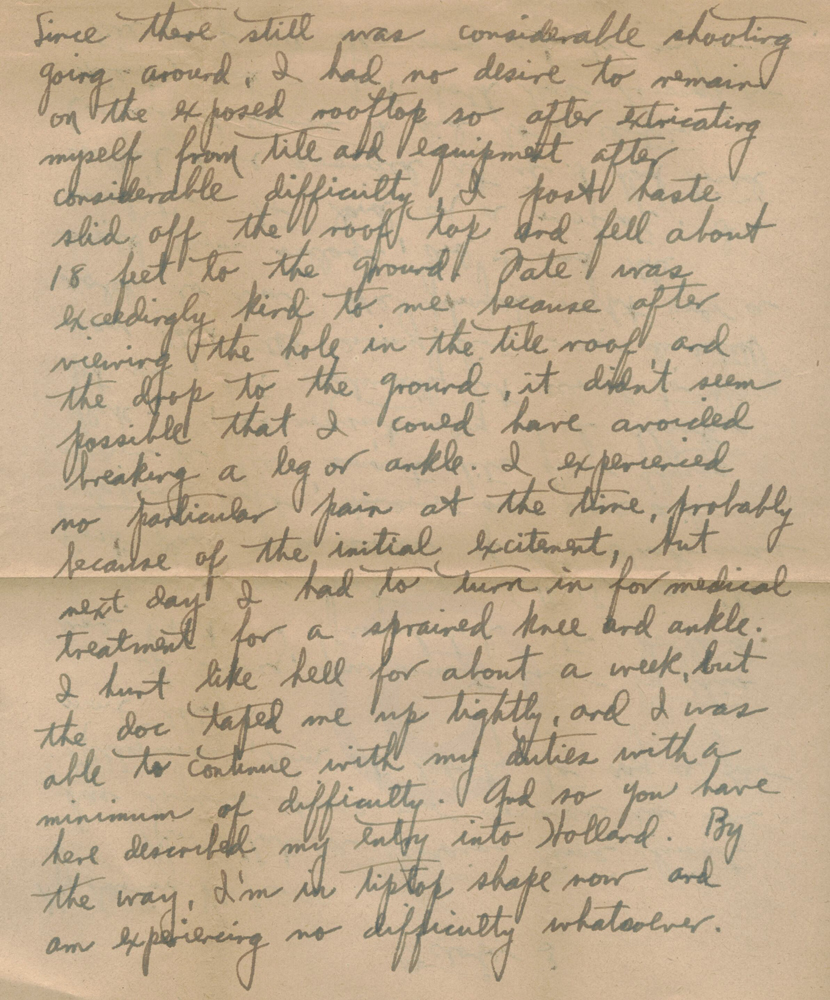 Since there still was considerable shooting
going around, I had no desire to remain
on the exposed rooftop so after extricating
myself from tile and equipment after
considerable difficulty, I post haste
slid off the roof top and fell about
18 feet to the ground. Fate was
exceedingly kind to me because after
viewing the hole in the tile roof and
the drop to the ground, it didn't seem
possible that I could have avoided
breaking a leg or ankle. I experienced
no particular pain at the time, probably
because of the initial excitement, but
next day I had to turn in for medical
treatment for a sprained knee and ankle.
I hurt like hell for about a week, but
the doc taped me up tightly, and I was
able to continue with my duties with a
minimum of difficulty. And so you have
here described my entry into Holland. By
the way, I'm in tiptop shape now and
am experiencing no difficulty whatsoever.